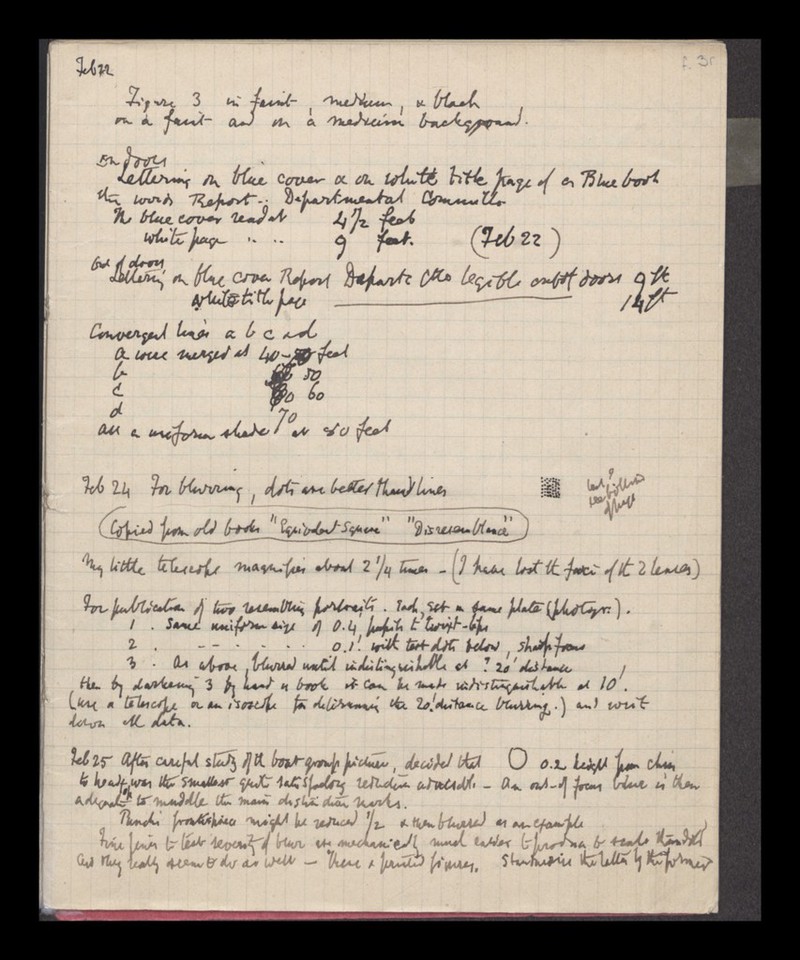 f. 3r
Feb 22
Figure 3 in faint, medium, & black
on a faint and on a medium background.
In doors
Lettering on blue cover & on white title page of a Blue book
the words Report .. Departmental Committee
The blue cover read at 4 1/2 feet
white page " .. 9 feet. (Feb 22)
Out of doors
Lettering on blue cover Report Departs Ctte legible out of doors 9 ft
white title page 14 ft
Convergent lines a b c & d
a were merged at 40- feet
b 50
c 60
d 70
all a uniform shade at 80 feet
Feb 24 For blurring, dots are better than lines
last?
of page
(Copied from old books "Equivalent Square" "Disresemblance")
My little telescope magnifies about 2 1/4 times - (I have lost the foci of the 2 lenses)
For publication of two resembling portraits. Each, get on same plate (photogr:).
1 . Same uniform size of 0.4, pupils to
2 . - - . . . . 0.1. with test dots below, sharp focus
3 . As above, blurred until indistinguishable at ? 20' distance
then by darkening 3 by hand it can be made indistinguishable at 10'.
(use a telescope or an isoscope for determining the 20' distance blurring.) and write
down all data.
Feb 25 After careful study of the boat group picture, decided that 0.2 height from chin
to head was the smallest quite satisfactory reduction advisable - An out-of focus blur is then
adequate to muddle the main distinctive marks.
Punch's frontispiece might be reduced 1/2 & then blurred as an example
Fine lines to test severity of blur are mechanically much easier to produce to scale than dots
and they really seem to do as well - There & printed figures. Standardise the latter by the former